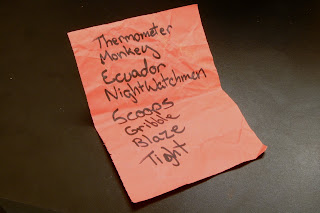 Thermometer
Monkey
Ecuador
NightWatchmen
Scoops
Gribble
Blaze
Tight